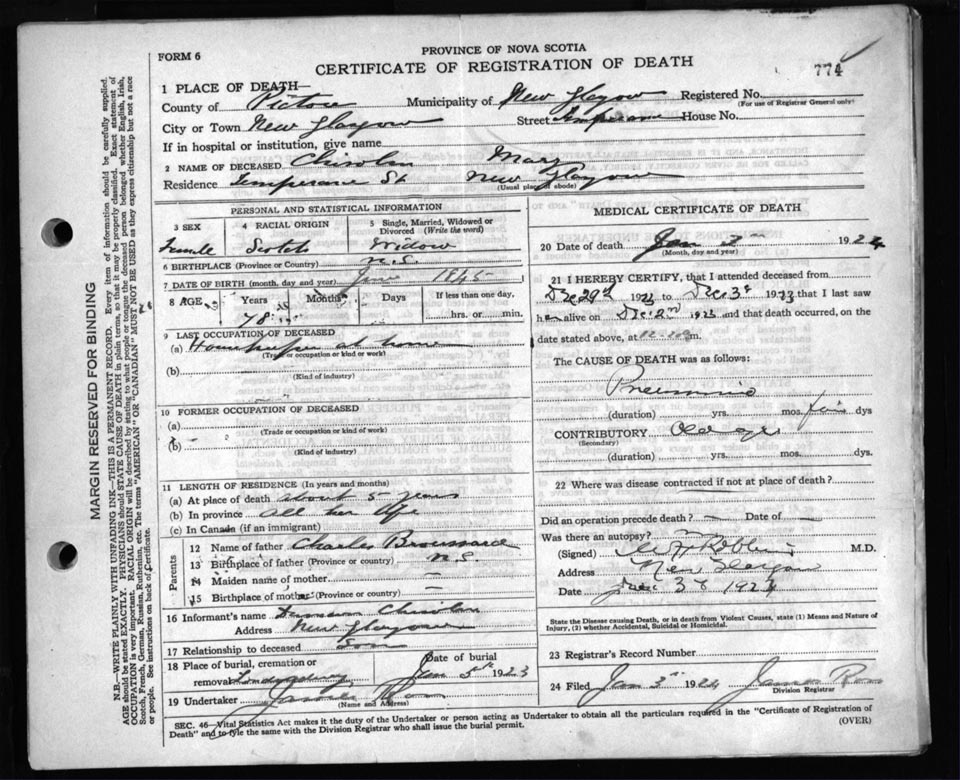 FORM 6
PROVINCE OF NOVA SCOTIA
CERTIFICATE OF REGISTRATION OF DEATH
774
1 PLACE OF DEATH—
County of Pictou Municipality of New Glasgow Registered No.
(For use of Registrar General only)
City or Town New Glasgow Street Temperance House No.
If in hospital or institution, give name
2 NAME OF DECEASED Chisolm Mary
Residence Temperance St. New Glasgow
(Usual place of abode)
PERSONAL AND STATISTICAL INFORMATION
3 SEX 4 RACIAL ORIGIN 5 Single, Married, Widowed or Divorced (Write the word)
Female Scotch Widow
6 BIRTHPLACE (Province or Country) N.S.
7 DATE OF BIRTH (month, day and year) 1845
8 AGE Years Months Days If less than one day,
78 hrs. or min.
9 LAST OCCUPATION OF DECEASED
(a) Housekeeper at home
(Trade or occupation or kind or work)
(b)
(Kind of industry)
10 FORMER OCCUPATION OF DECEASED
(a)
(Trade or occupation or kind of work)
(b)
(Kind of industry)
11 LENGTH OF RESIDENCE (In years and months)
(a) At place of death about 5 years
(b) In province all her life
(c) In Canada (if an immigrant)
Parents
12 Name of father Charles Broussard
13 Birthplace of father (Province or country) N.S.
14 Maiden name of mother —
15 Birthplace of mother (Province or country) —
16 Informant's name Chisolm
Address New Glasgow
17 Relationship to deceased Son
18 Place of burial, cremation or Date of burial
removal Jan 5th 1923
19 Undertaker James
(Name and Address)
MEDICAL CERTIFICATE OF DEATH
20 Date of death Jan 2nd 1924
(Month, day and year)
21 I HEREBY CERTIFY, that I attended deceased from
Dec 29th 1923 to Dec 3 1923 that I last saw
h alive on Dec 2nd 1923 and that death occurred, on the
date stated above, at m.
The CAUSE OF DEATH was as follows:
Pneumonia
(duration) yrs. mos. five dys
CONTRIBUTORY Old age
(Secondary)
(duration) yrs. mos. dys.
22 Where was disease contracted if not at place of death?
Did an operation precede death? — Date of —
Was there an autopsy?
(Signed) Robbins M.D.
Address New Glasgow
Date 3 1924
State the Disease causing Death, or in death from Violent Causes, state (1) Means and Nature of Injury, (2) whether Accidental, Suicidal or Homicidal.
23 Registrar's Record Number
24 Filed Jan 3rd 1924 James
Division Registrar
SEC. 46—Vital Statistics Act makes it the duty of the Undertaker or person acting as Undertaker to obtain all the particulars required in the "Certificate of Registration of
Death" and to file the same with the Division Registrar who shall issue the burial permit. (OVER)
MARGIN RESERVED FOR BINDING
N.B.—WRITE PLAINLY WITH UNFADING INK—THIS IS A PERMANENT RECORD. Every item of information should be carefully supplied.
AGE should be stated EXACTLY. PHYSICIANS should STATE CAUSE OF DEATH in plain terms, so that it may be properly classified. Exact statement of
OCCUPATION is very important. RACIAL ORIGIN will be described by stating to what people or tongue the deceased person belonged whether English, Irish,
Scotch, French, German, Russian, Ruthenian, etc. The terms "AMERICAN" OR "CANADIAN" MUST NOT BE USED as they express citizenship but not a race
or people. See instructions on back of Certificate.